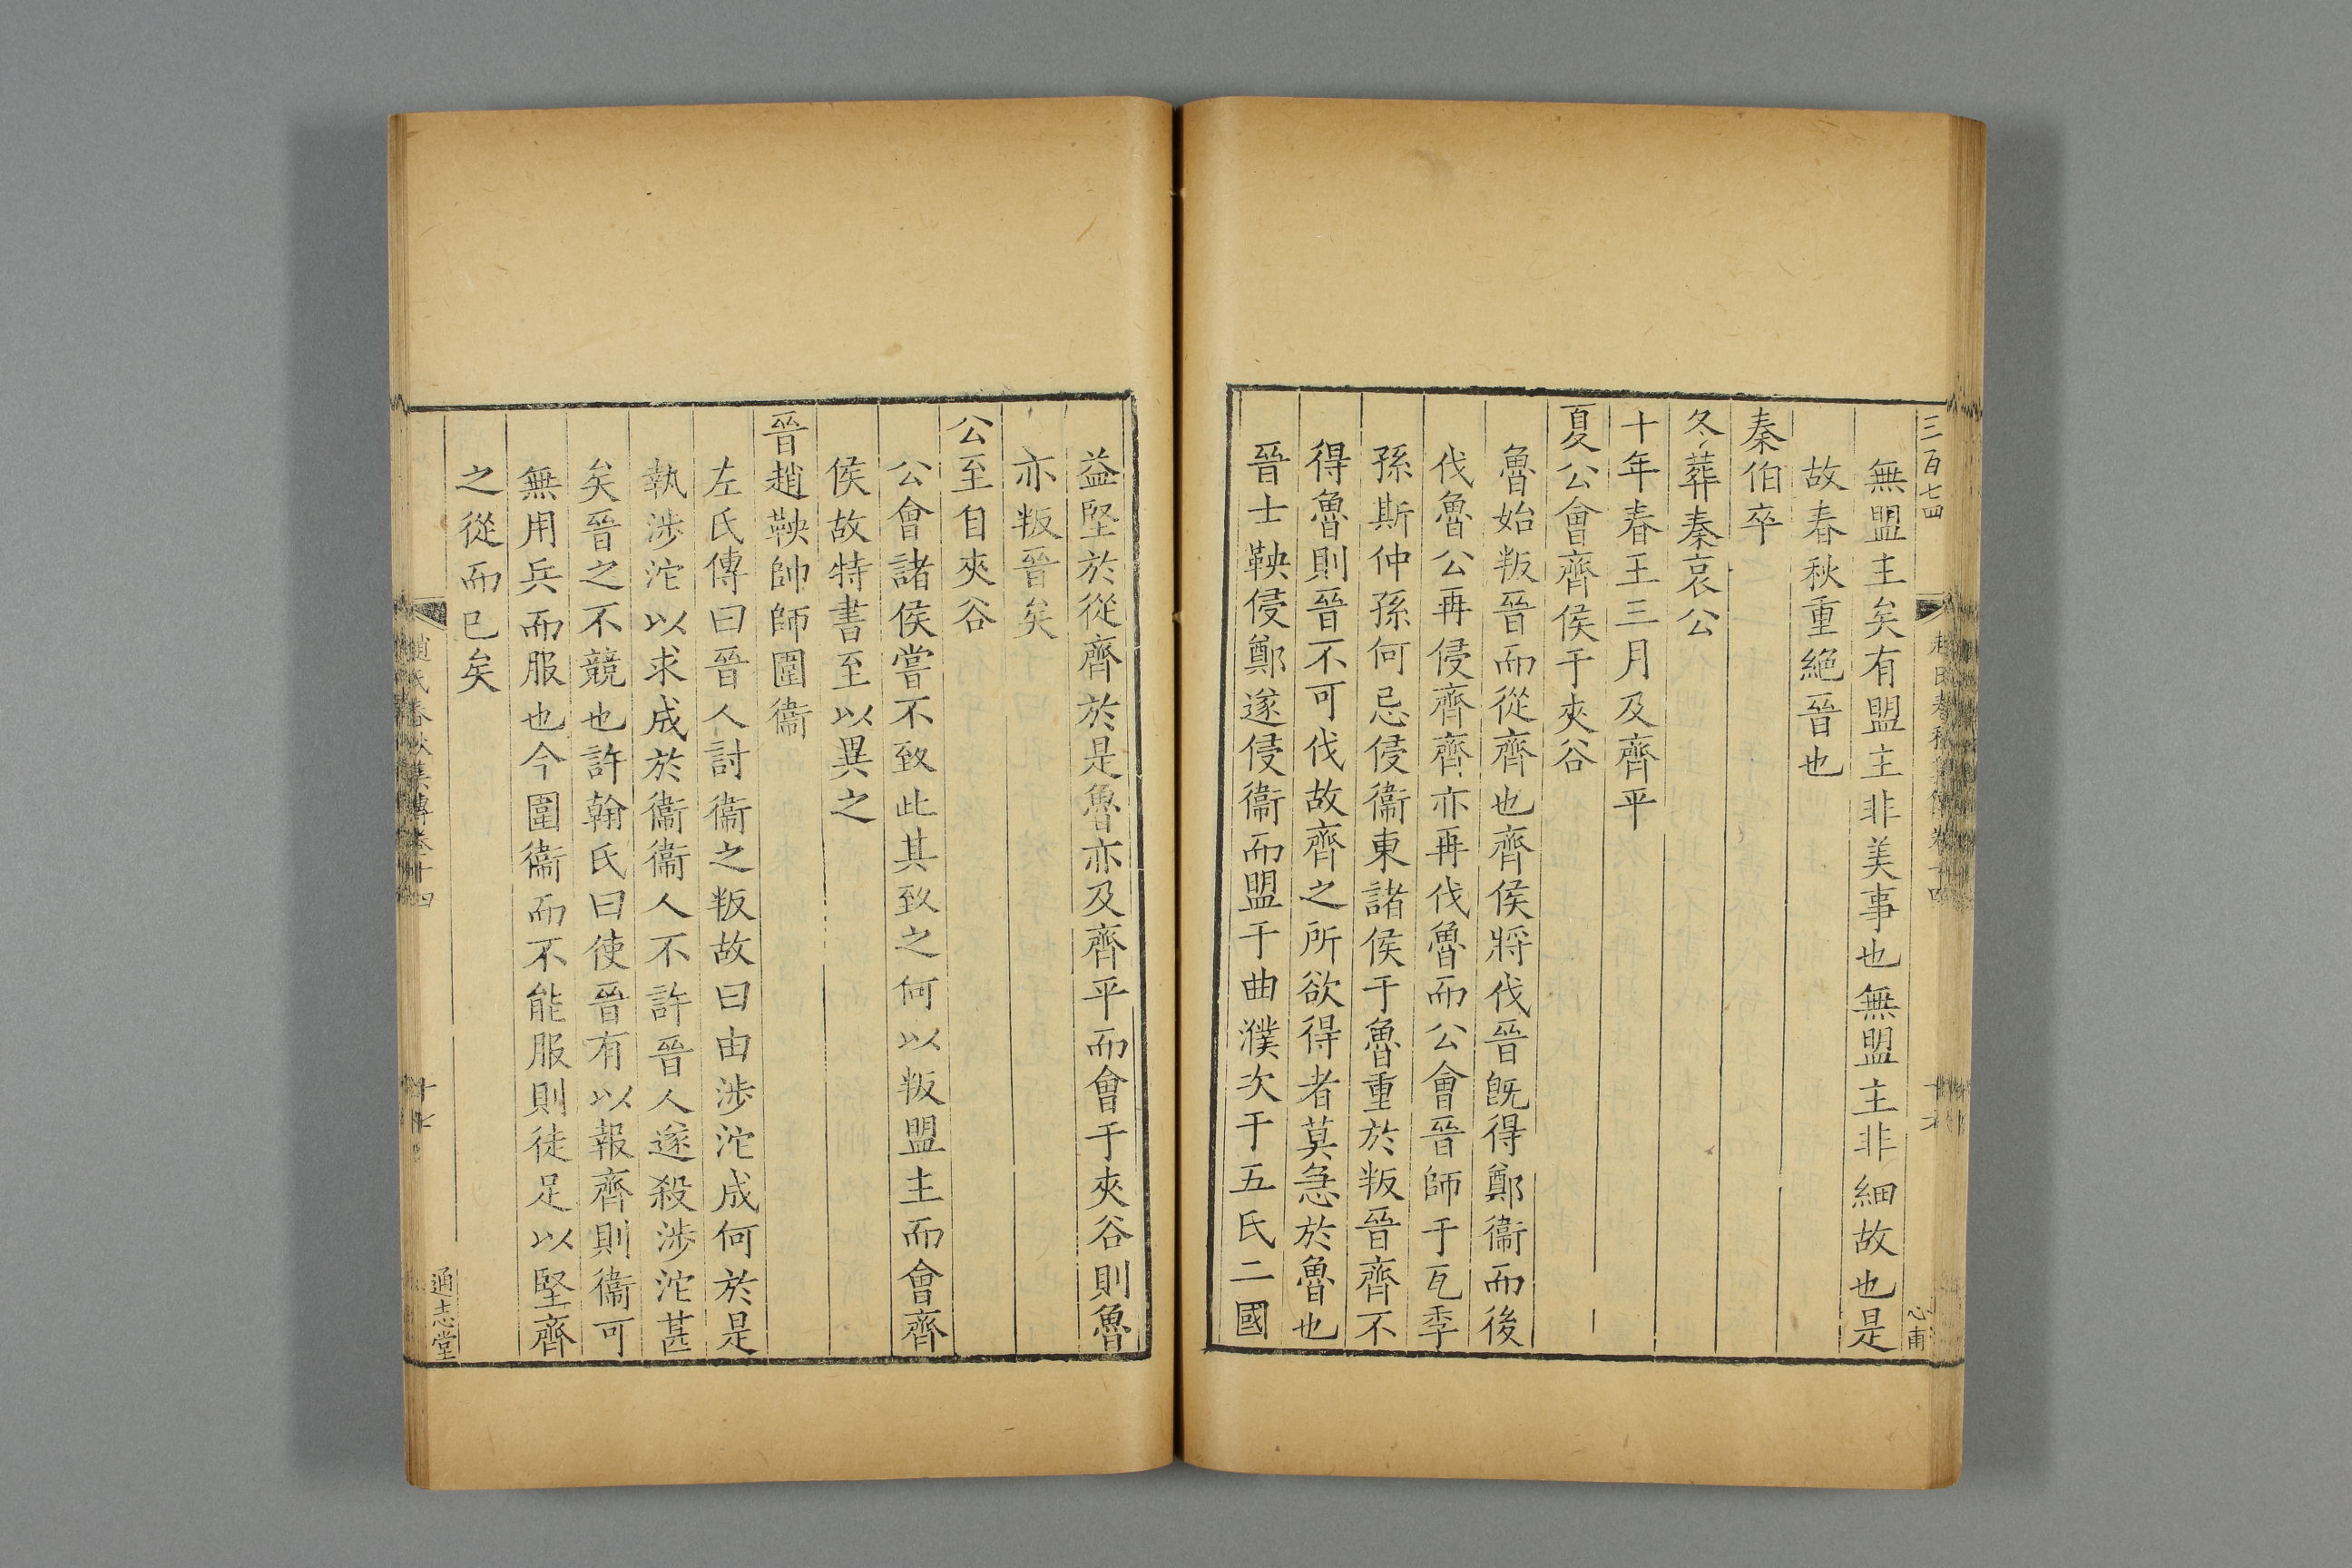 三百七四
趙氏春秋集傳卷十四
心甫
無盟主矣有盟主非美事也無盟主非細故也是
故春秋重絕晉也
秦伯卒
冬葬秦哀公
十年春王三月及齊平
夏公會齊侯于夾谷
魯始叛晉而從齊也齊侯將伐晉旣得鄭衞而後
伐魯公再侵齊齊亦再伐魯而公會晉師于瓦季
孫斯仲孫何忌侵衞東諸侯于魯重於叛晉齊不
得魯則晉不可伐故齊之所欲得者莫急於魯也
晉士鞅侵鄭遂侵衞而盟于曲濮次于五氏二國
益堅於從齊於是魯亦及齊平而會于夾谷則魯
亦叛晉矣
公至自夾谷
公會諸侯嘗不致此其致之何以叛盟主而會齊
侯故特書至以異之
晉趙鞅帥師圍衞
左氏傳曰晉人討衞之叛故曰由涉沱成何於是
執涉沱以求成於衞衞人不許晉人遂殺涉沱甚
矣晉之不競也許翰氏曰使晉有以報齊則衞可
無用兵而服也今圍衞而不能服則徒足以堅齊
之從而已矣
趙氏春秋集傳卷十四
十七
通志堂